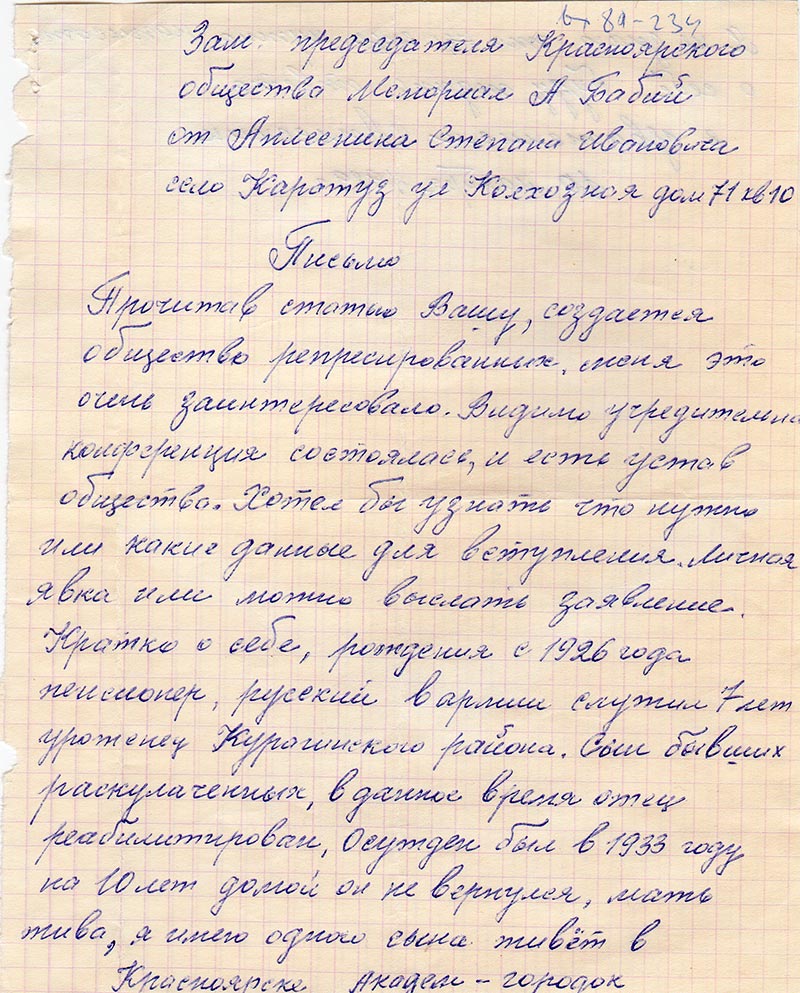 вх 89-234
Зам. председателя Красноярского
общества Мемориал А Бабий
от Аплеснина Степана Ивановича
село Каратуз ул Колхозная дом 71 кв 10
Письмо
Прочитав статью Вашу, создается
общество репресированных. меня это
очень заинтересовало. Видимо учредительная
конференция состоялась, и есть устав
общества. Хотел бы узнать что нужно
или какие данные для вступления. Личная
явка или можно выслать заявление.
Кратко о себе, рождения с 1926 года
пенсионер, русский в армии служил 7 лет
уроженец Курагинского района. Сын бывших
раскулаченных, в данное время отец
реабилитирован, Осужден был в 1933 году
на 10 лет домой он не вернулся, мать
жива, я имею одного сына живёт в
Красноярске Академ-городок